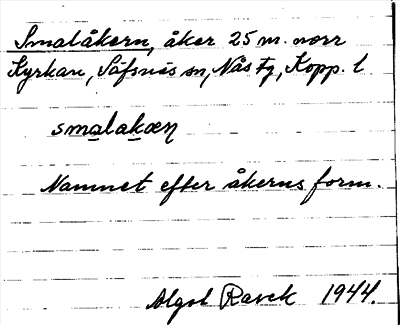 Smalåkern, åker 25 m. norr
Kyrkan, Säfsnäs sn, Nås tg, Kopp. l
smalakæɳ
Namnet efter åkerns form.
Algot Ravek 1944.